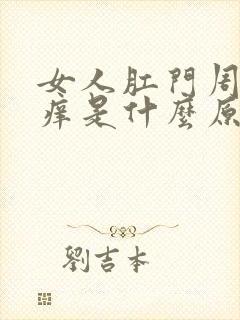 女人肛門周
痒是什麼原
劉吉本